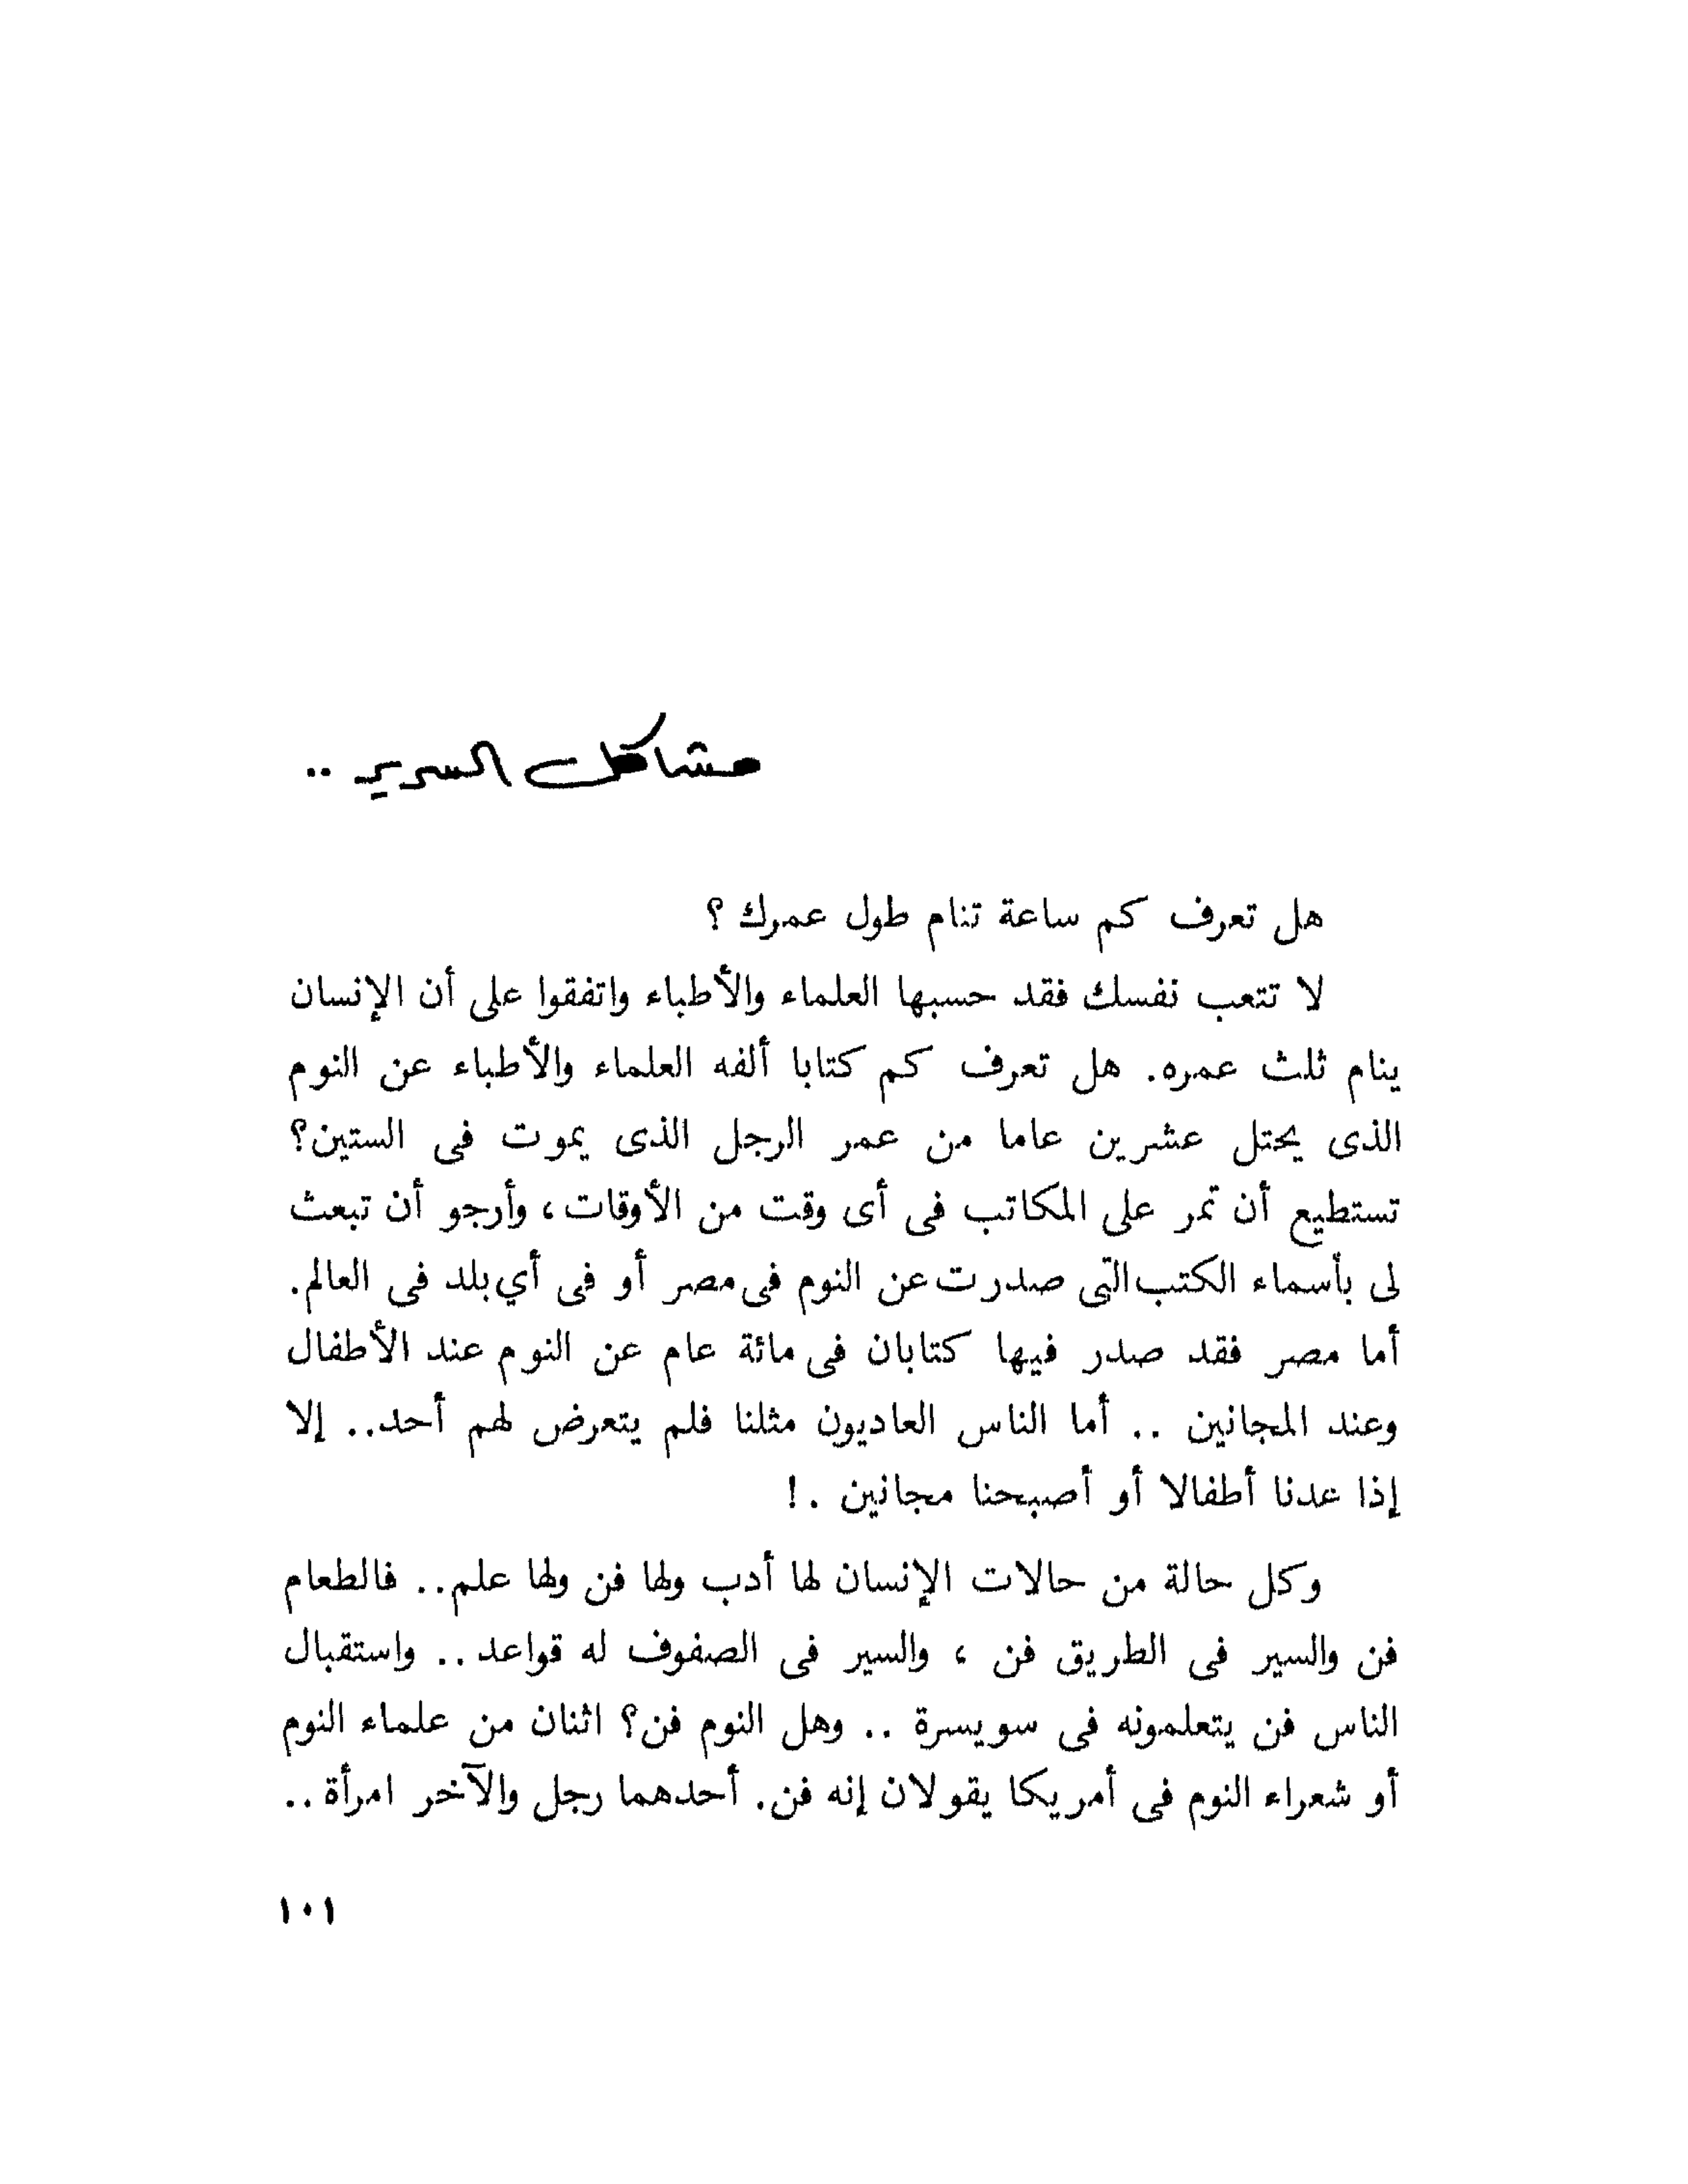 مشاكل السرير ..
هل تعرف كم ساعة تنام طول عمرك ؟
لا تتعب نفسك فقد حسبها العلماء والأطباء واتفقوا على أن الإنسان
ينام ثلث عمره. هل تعرف كم كتابا ألفه العلماء والأطباء عن النوم
الذى يحتل عشرين عاما من عمر الرجل الذى يموت فى الستين؟
تستطيع أن تمر على المكاتب فى أى وقت من الأوقات، وأرجو أن تبعث
لى بأسماء الكتب التى صدرت عن النوم فى مصر أو فى أي بلد فى العالم.
أما مصر فقد صدر فيها كتابان فى مائة عام عن النوم عند الأطفال
وعند المجانين .. أما الناس العاديون مثلنا فلم يتعرض لهم أحد.. إلا
إذا عدنا أطفالا أو أصبحنا مجانين .!
وكل حالة من حالات الإنسان لها أدب ولها فن ولها علم.. فالطعام
فن والسير فى الطريق فن ، والسير فى الصفوف له قواعد.. واستقبال
الناس فن يتعلمونه فى سويسرة .. وهل النوم فن؟ اثنان من علماء النوم
أو شعراء النوم فى أمريكا يقولان إنه فن. أحدهما رجل والآخر امرأة..
١٠١